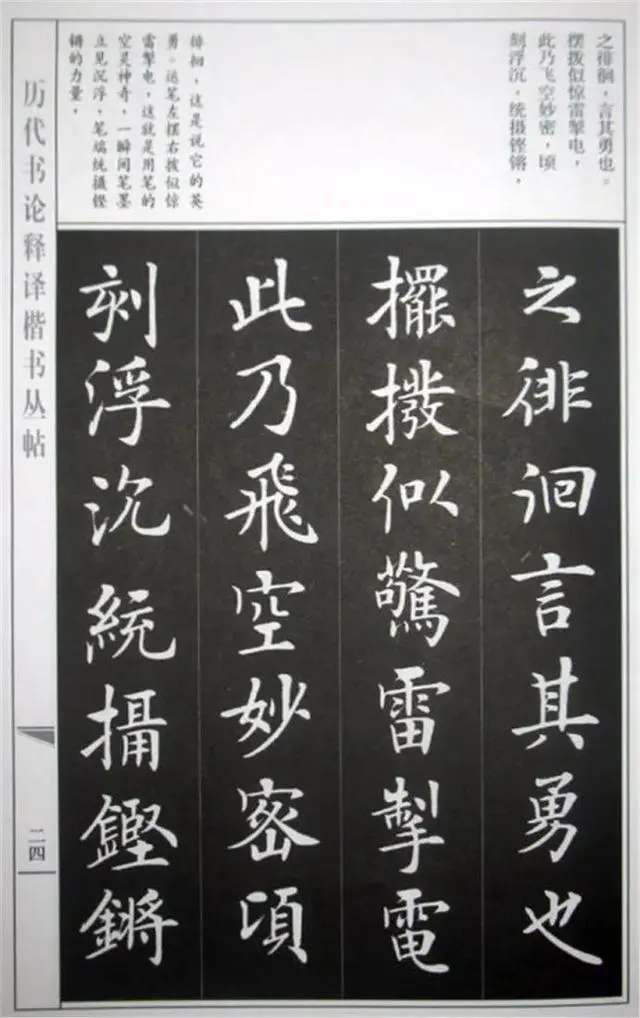 之徘徊，言其勇也。
摆拨似惊雷掣电，
此乃飞空妙密，顷
刻浮沉，统摄铿锵，
徘徊，这是说它的英
勇。运笔左摆右拨似惊
雷掣电，这就是用笔的
空灵神奇，一瞬间笔墨
立见沉浮，笔端统摄铿
锵的力量，
之徘徊言其勇也
擺撥似驚雷掣電
此乃飛空妙密頃
刻浮沉統攝鏗鏘
历代书论释译楷书丛帖
二四